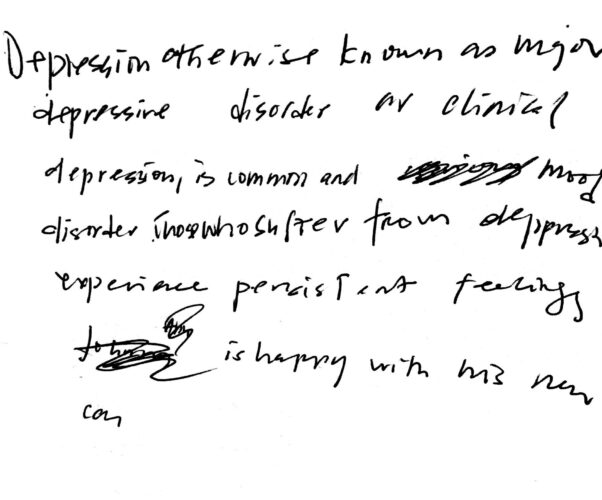 Depression otherwise known as major
depressive disorder or clinical
depression, is common and mood
disorder. Those who suffer from depress
experience persistent feelings
is happy with his new